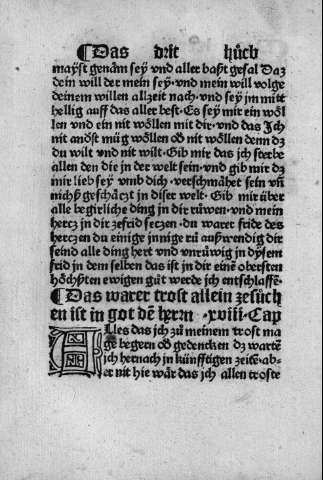 Das drit bůch
mayst genäm sey vnd aller baßt gefal Daz
dein will der mein sey · vnd mein will volge
deinem willen allzeit nach · vnd sey jm mitt
hellig auff das aller best · Es sey mir ein wöl
len vnd ein nit wöllen mit dir · vnd das Jch
nit andst müg wöllen oď nit wöllen denn dz
du wilt vnd nit wilt · Gib mir das jch sterbe
allen den die in der welt sein · vnd gib mir dz
mir lieb sey vmb dich · verschmähet sein vñ
nicht geschäczt in diser welt · Gib mir über
alle begirliche ding in dir růwen · vnd mein
hercz in dir zefrid seczen · du warer fride des
herczen du einige jnnige rů außwendig dir
seind alle ding hert vnd vnrůwig in dysem
frid in dem selben das ist in dir einē obersten
höchsten ewigen gůt werde jch entschlaffē ·
Das warer trost allein zesůch
en ist in got dē herrn · xviii · Cap
Alles das jch zů meinem trost ma
ge begern oď gedencken dz wartē
jch hernach in künfftigen zeitē · ab-
er nit hie wär das jch allen troste